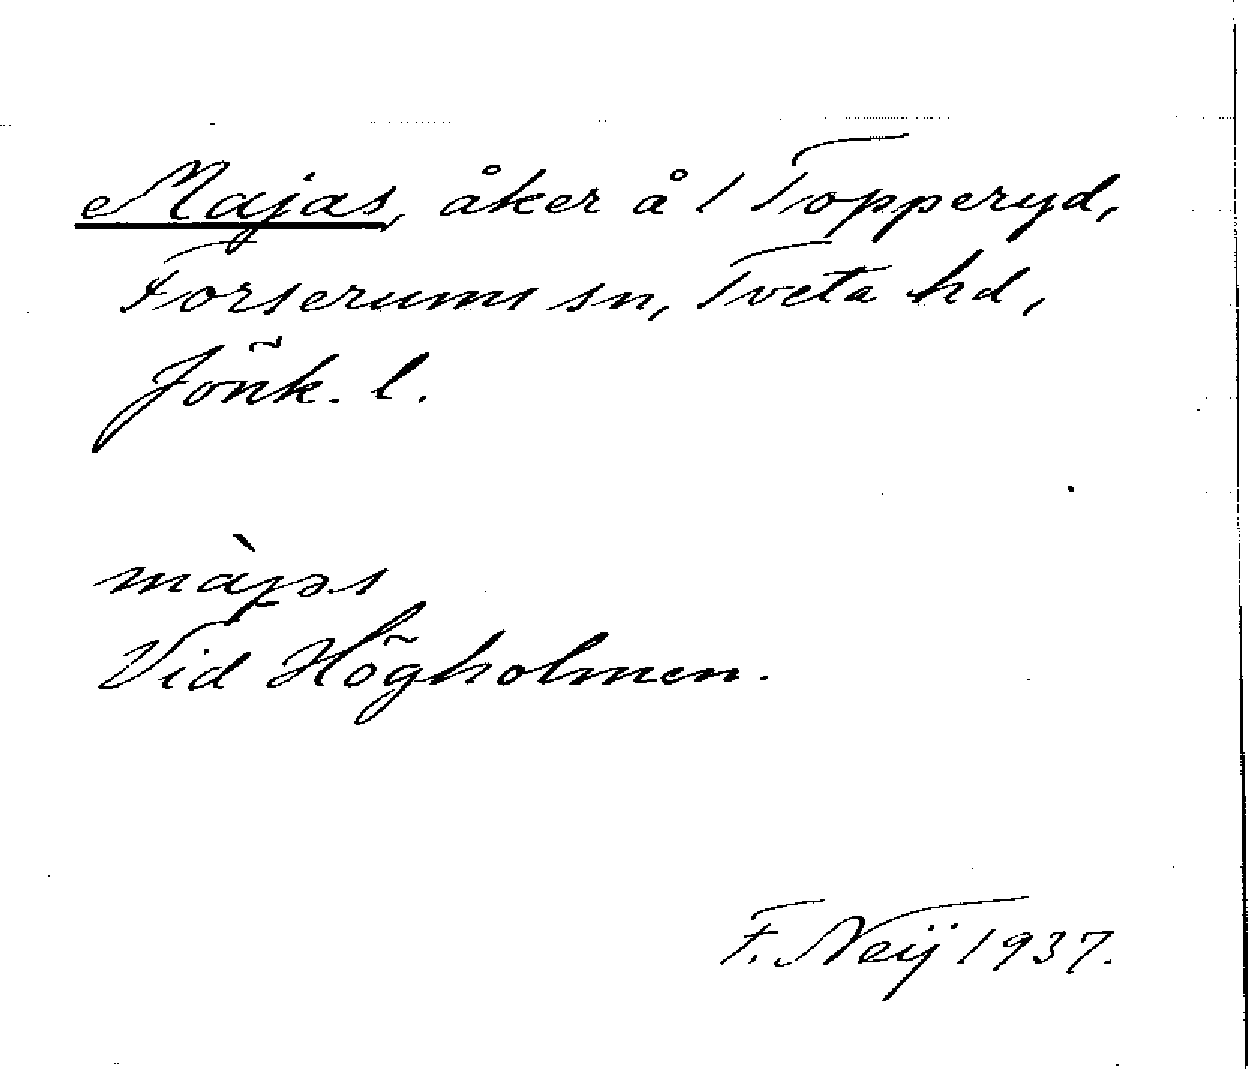 Majas, åker å 1 Topperyd,
Forserums sn, Tveta hd,
Jönk. l.
Vid Högholmen.
F. Neij 1937.